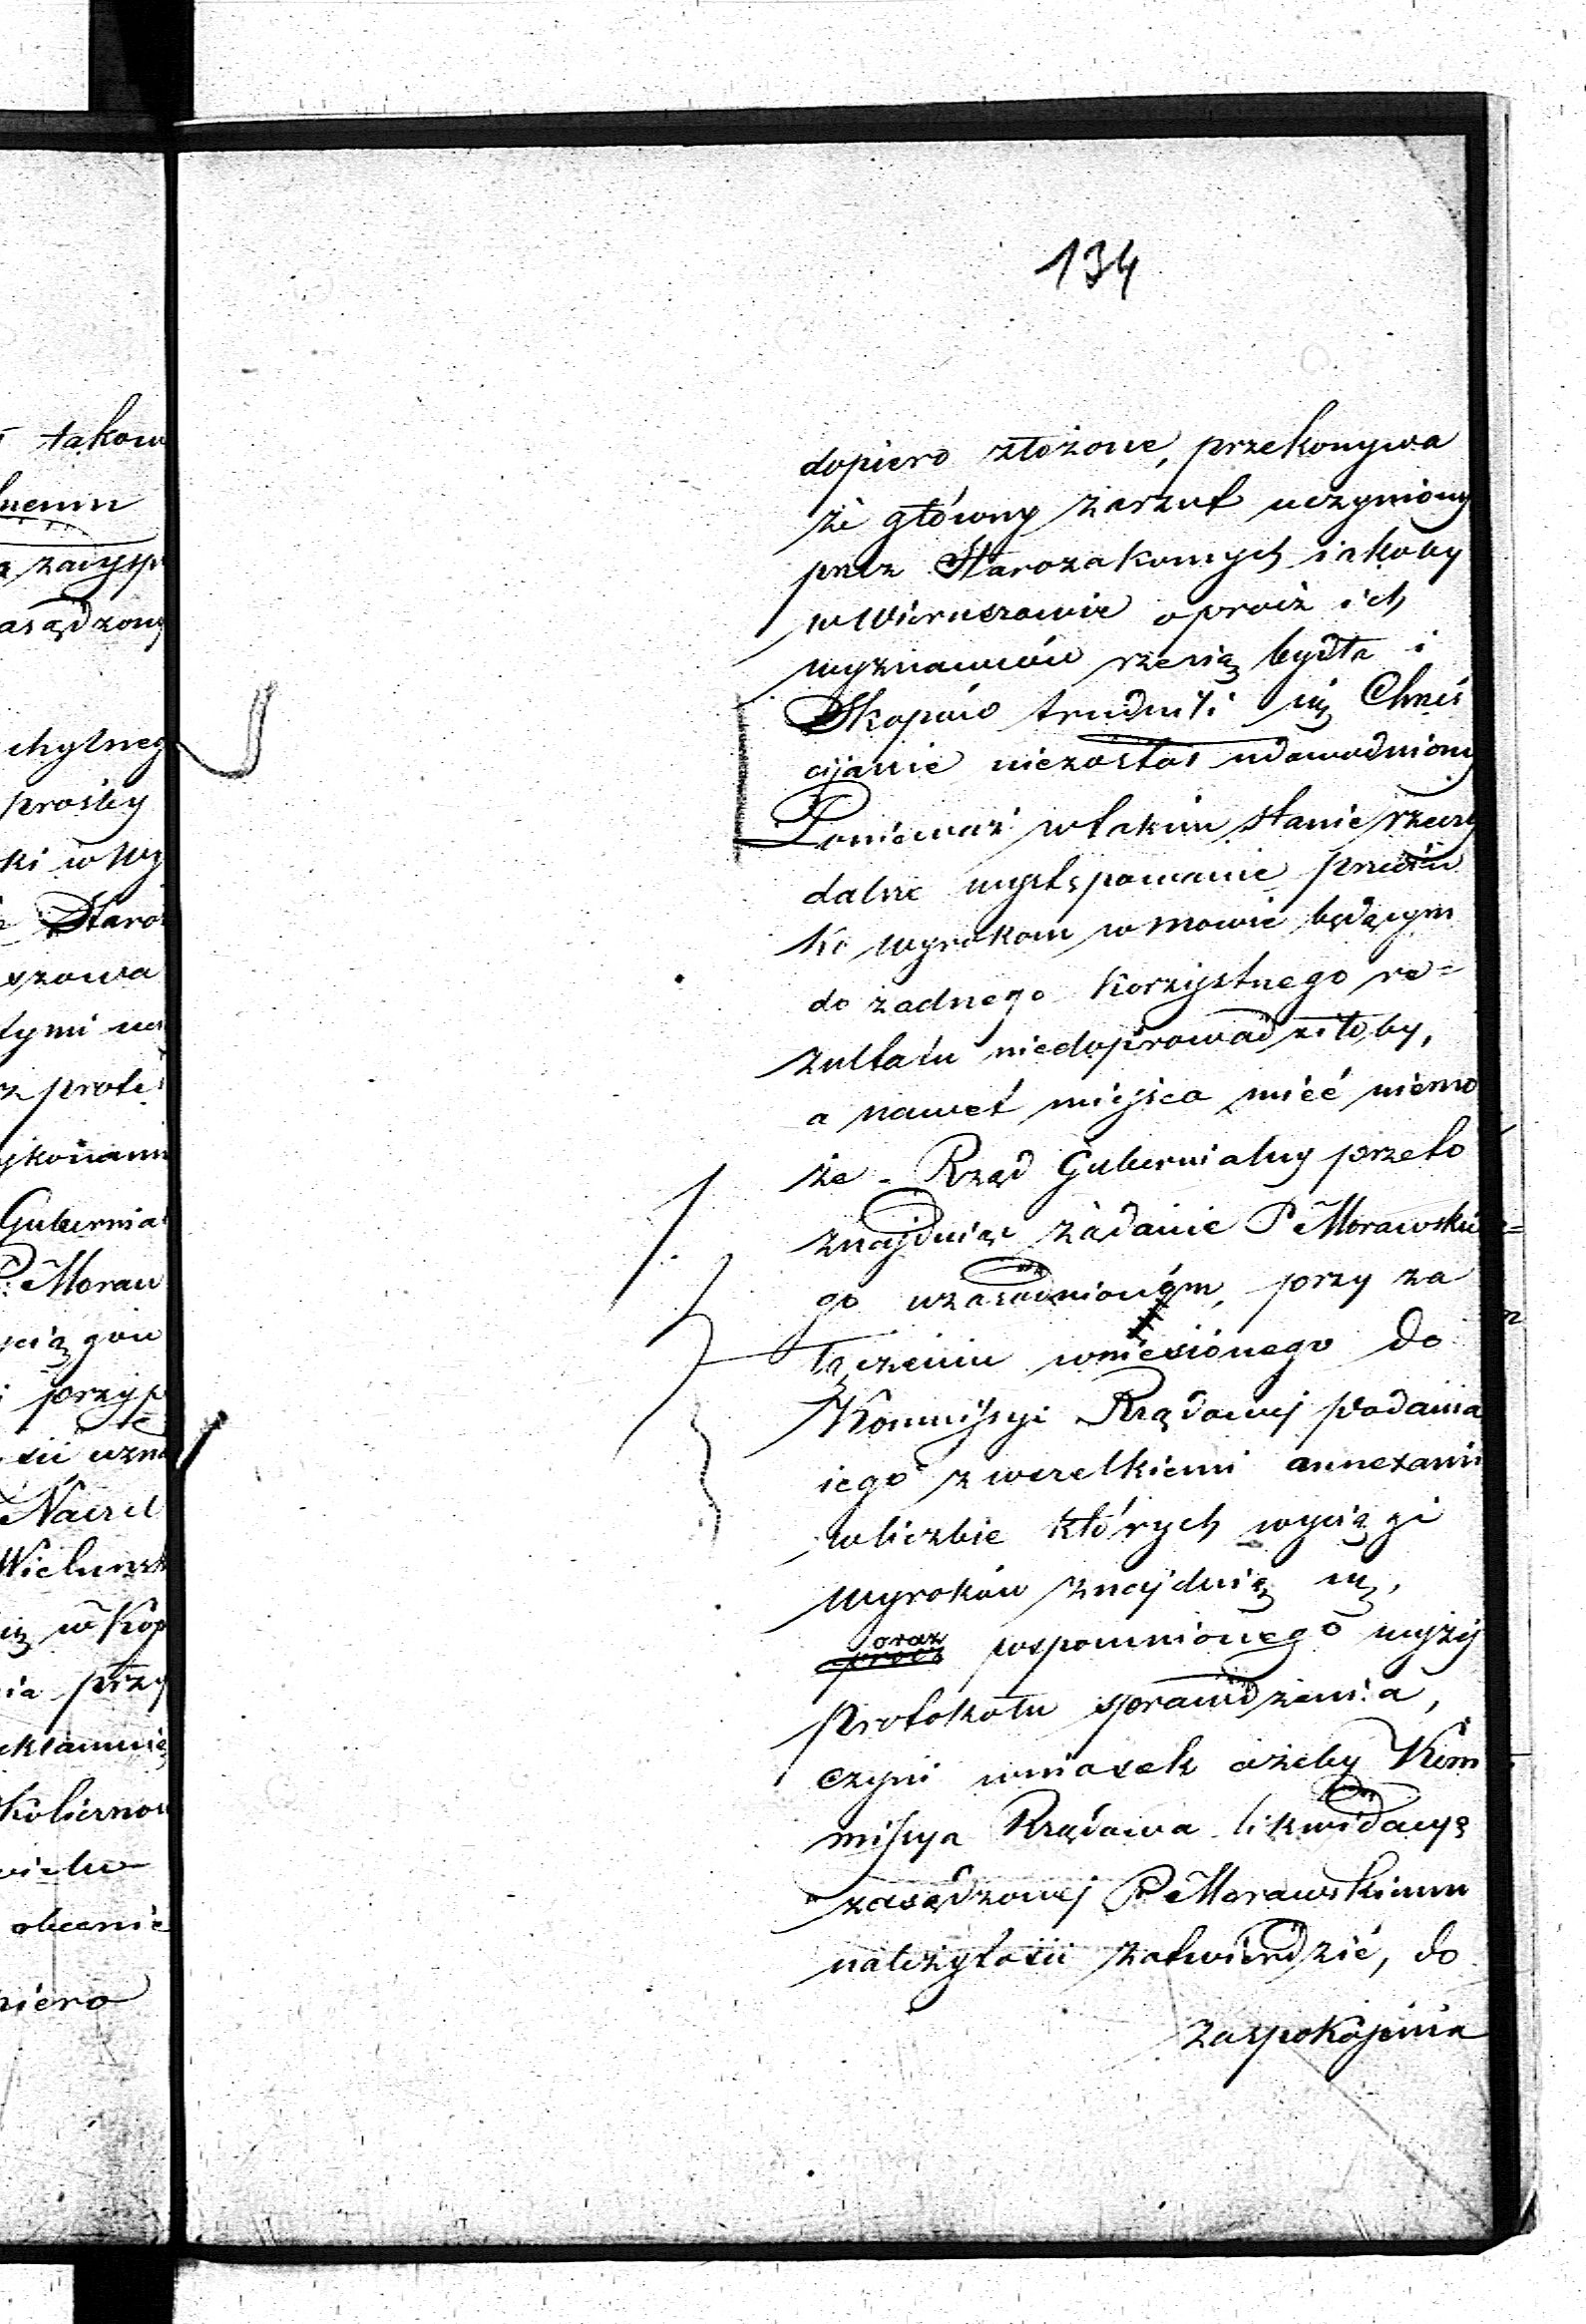 134
dopiero złożone, przekonywa
że główny zarzut uczyniony
przez Starozakonnych iakoby
w Wieruszowie oprócz ich
wyznawców rzezią bydła i
Skopów trudnili się Chrześ
cijanie niezostał udowodniony
Ponieważ w takim stanie rzeczy
dalsze występowanie przeciw
ko wyrokom w mowie będącym
do żadnego korzystnego re=
zultatu niedoprowadziłoby,
a nawet miejsca mieć niemo
że - Rząd Gubernialny przeto
znajduiąc żądanie P Morawskie=
go uzasadnioném, przy za
łączeniu wniesionego do
Kommissyi Rządowej podania
iego z wszelkiemi annexami
w liczbie których wyciągi
wyroków znajduią się,
oraz
prócz wspomnionego wyżej
protokołu sprawdzenia,
czyni wniosek ażeby Kom
missya Rządowa likwidacyę
zasądzonej P Morawskiemu
należytości zatwierdzić, do
zaspokojenia
takow
zasądzony
chylneg
prośby
ki w Wy
Staro
szowa
tymi
z prote
Gubernia
P. Moraw
przyp
uzna
Naczel
Wieluńsk
w Kop
nia przy
wielu
obecnie
piero